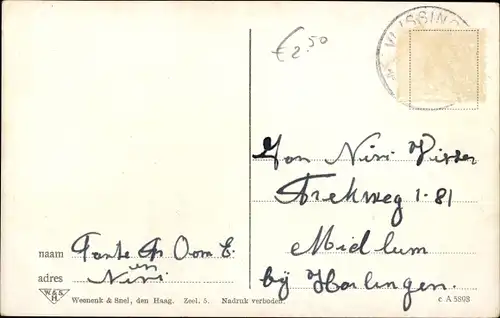 VLISSING
€2.50
Jon Nivi Visser
Trekweg 1-81
Midlum
bij Harlingen.
naam Tante Fr Oom E.
en
adres Nivi
W&S
H
Weenenk & Snel, den Haag. Zeel. 5. Nadruk verboden.
c A 5898